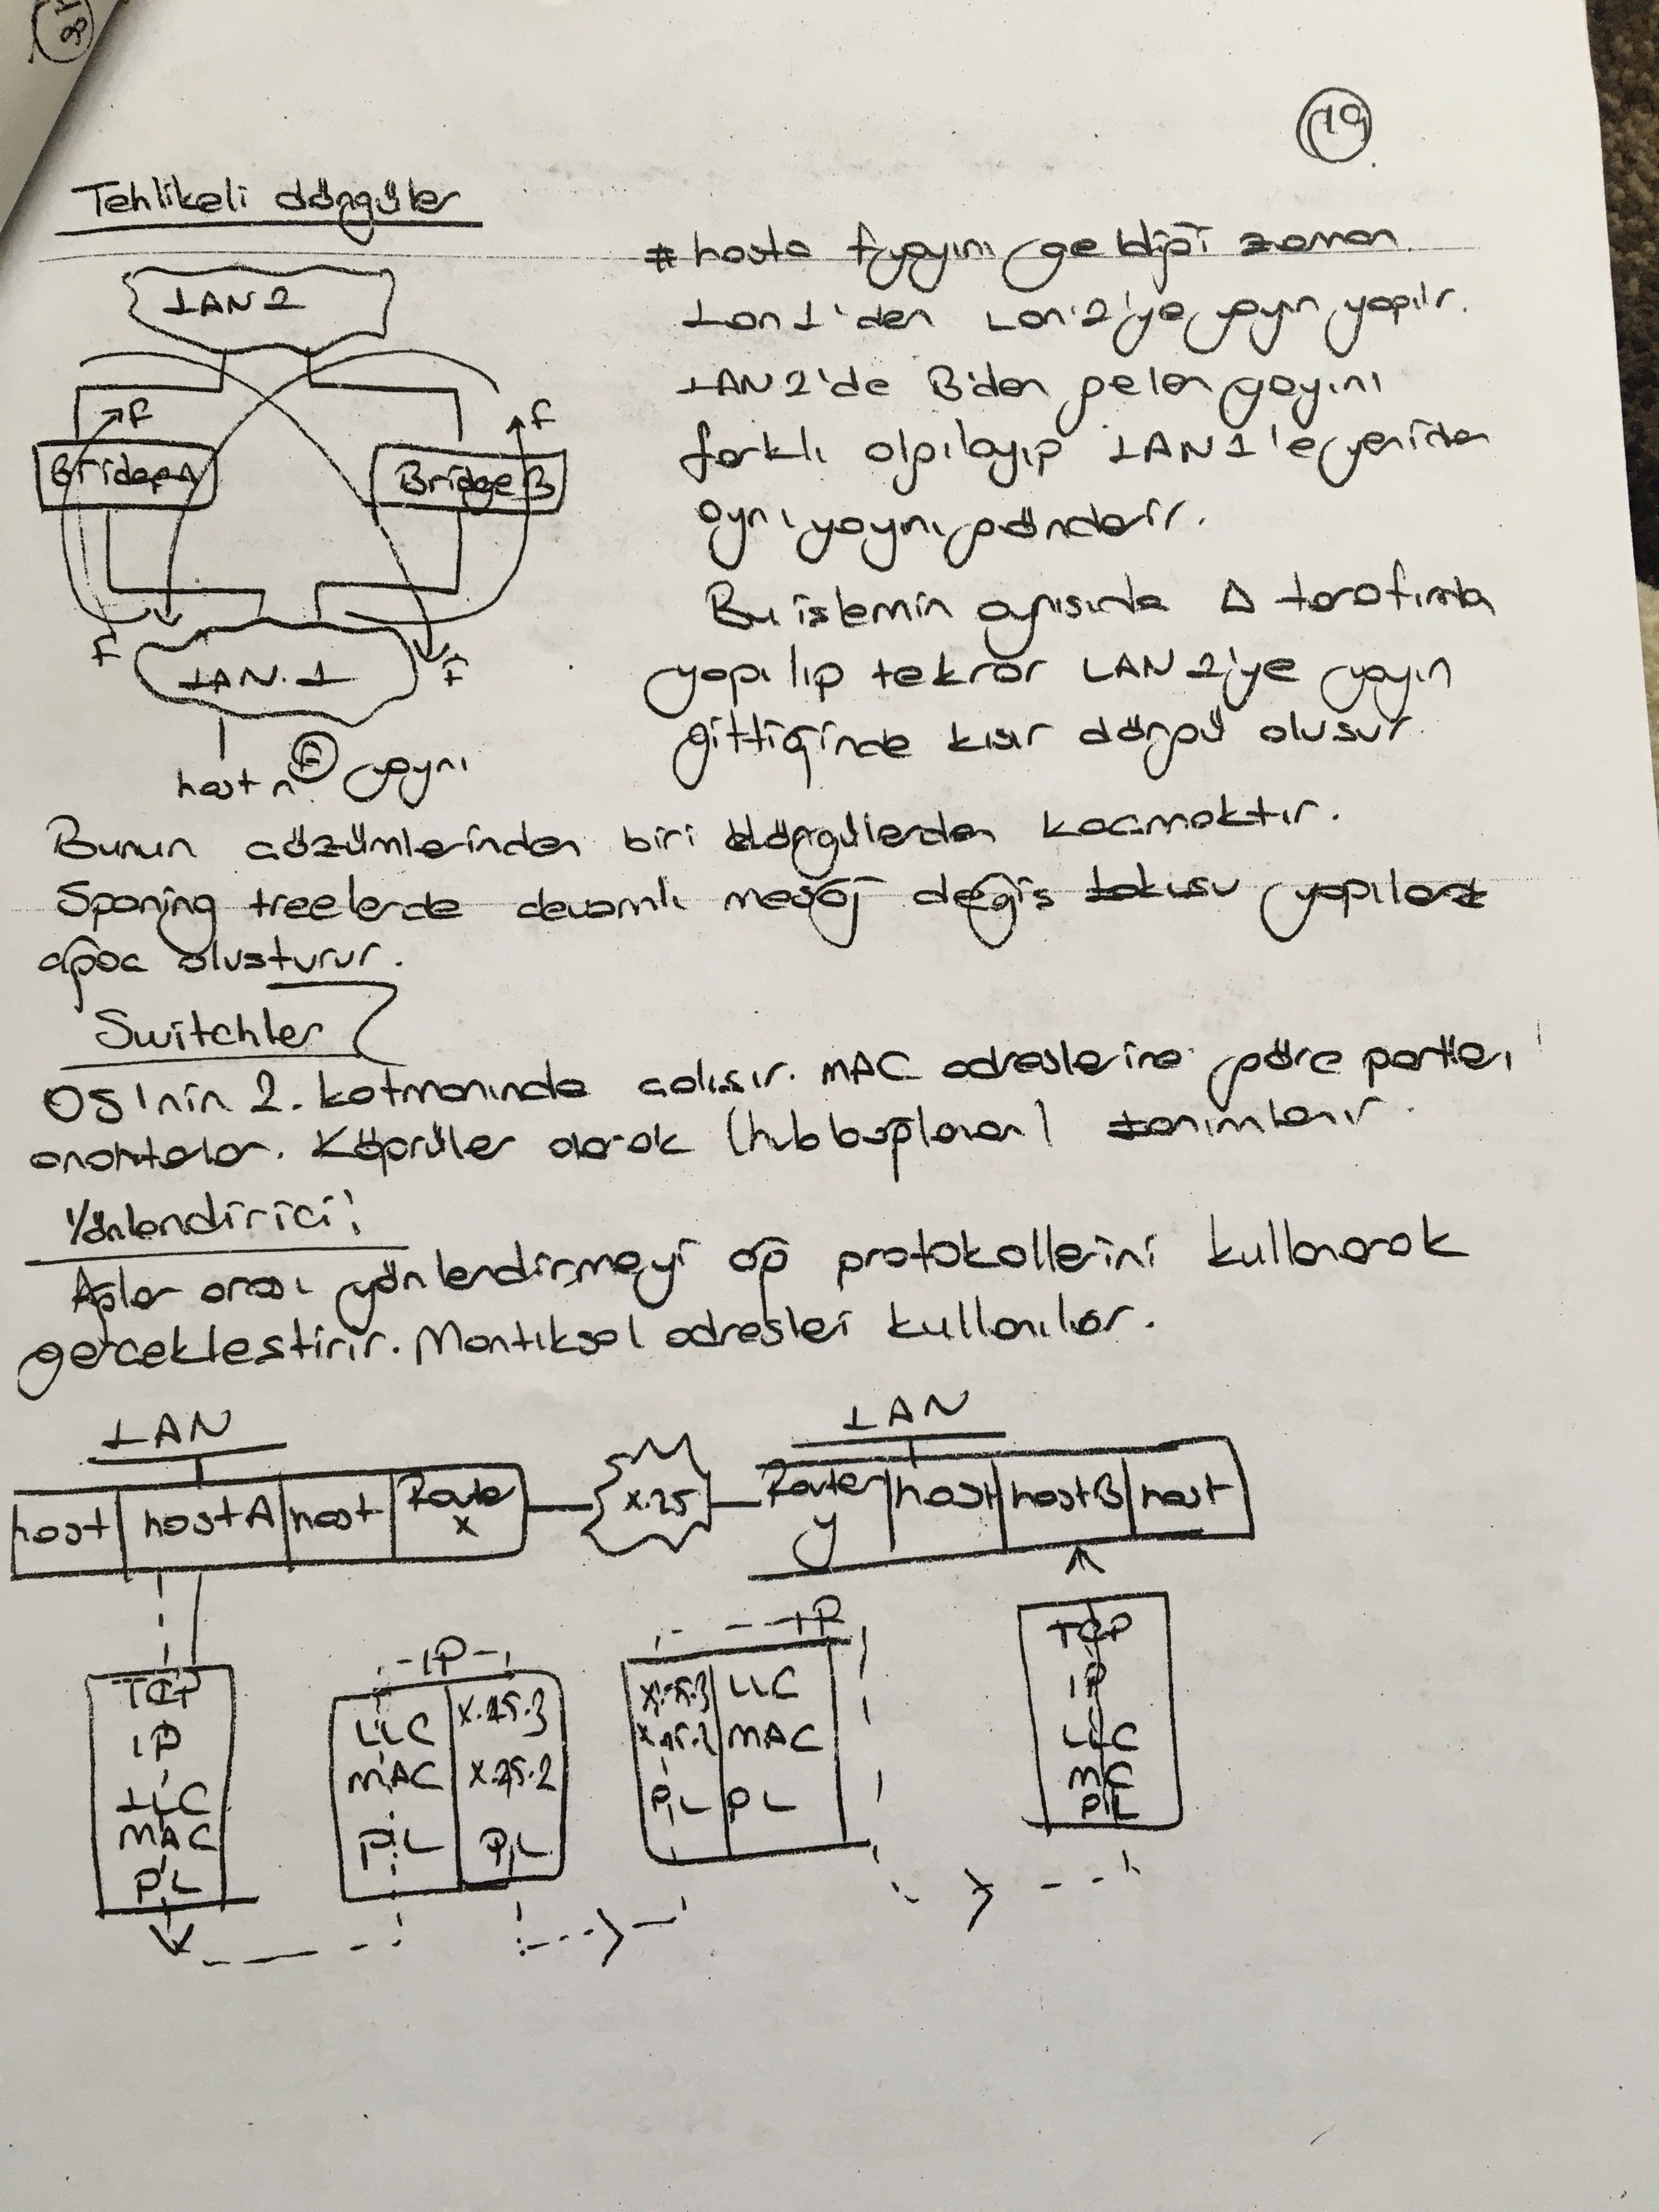 19
Tehlikeli döngüler
LAN 2
F
F
Bridge A
Bridge B
F
LAN.1
F
host n F yayını
# hosta f yayını geldiği zaman
Lan 1'den Lan 2'ye yayın yapılır.
LAN 2'de B'den gelen yayını
farklı algılayıp LAN 1'e yeniden
aynı yayını gönderir.
Bu işlemin aynısıda A tarafında
yapılıp tekrar LAN 2'ye yayın
gittiğinde kısır döngü oluşur.
Bunun çözümlerinden biri döngülerden kaçmaktır.
Spaning treelerde devamlı mesaj değiş tokuşu yapılarak
ağaç oluşturur.
Switchler
OSI nin 2. katmanında çalışır. MAC adreslerine göre portları
anahtarlar. Köprüler olarak (hub bağlanan) tanımlanır.
Yönlendirici;
Ağlar arası yönlendirmeyi ağ protokollerini kullanarak
gerçekleştirir. Mantıksal adresleri kullanılır.
LAN
LAN
host host A host Route x
X.25
Router y host host B host
TCP
IP
LLC
MAC
PL
IP
LLC X.25.3
MAC X.25.2
PL PL
IP
X.25.3 LLC
X.25.2 MAC
PL PL
TCP
IP
LLC
MC
PL